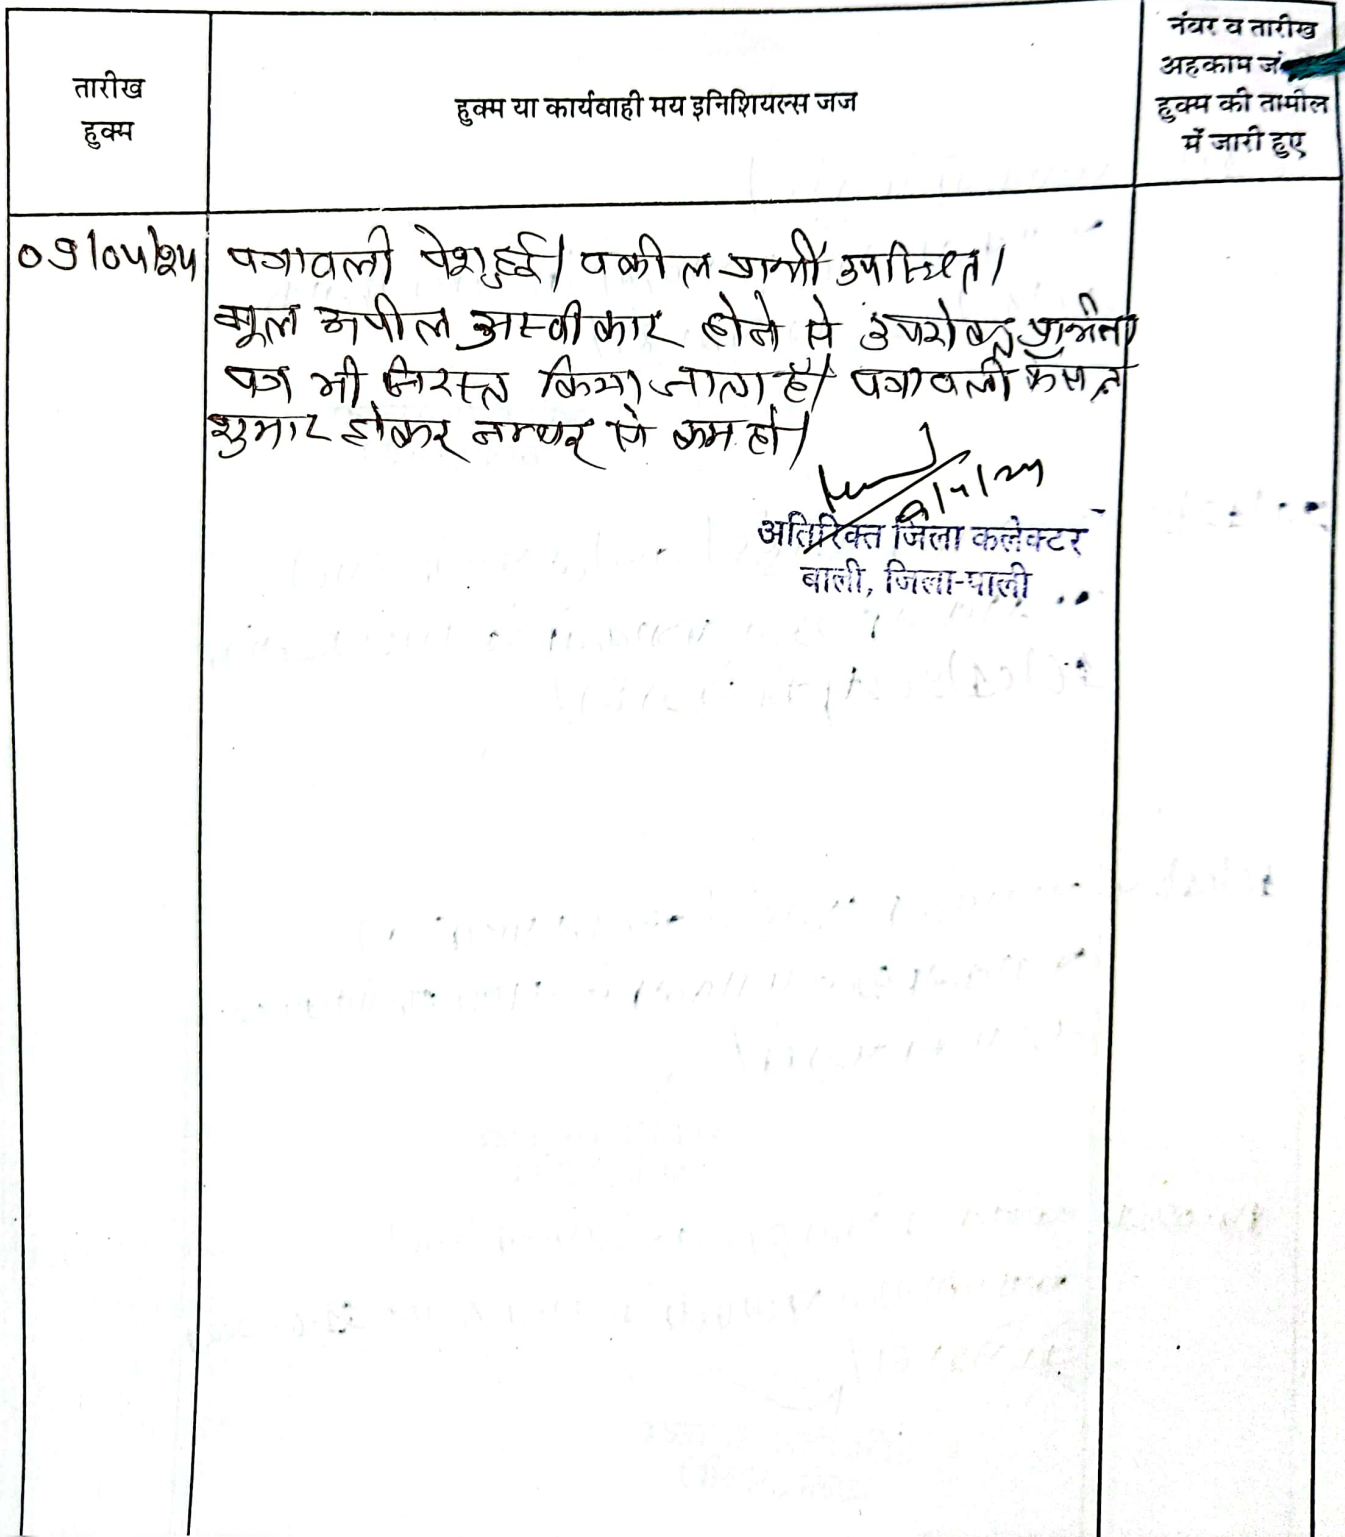 तारीख
हुक्म
हुक्म या कार्यवाही मय इनिशियल्स जज
नंबर व तारीख
अहकाम
हुक्म की तामील
में जारी हुए
09/04/24 पत्रावली पेश हुई। वकील प्रार्थी उपस्थित।
मूल अपील अस्वीकार होने से उपरोक्त प्रार्थना
पत्र भी निरस्त किया जाता है। पत्रावली फैसल
शुमार होकर नम्बर से कम हो।
अतिरिक्त जिला कलेक्टर
बाली, जिला-पाली